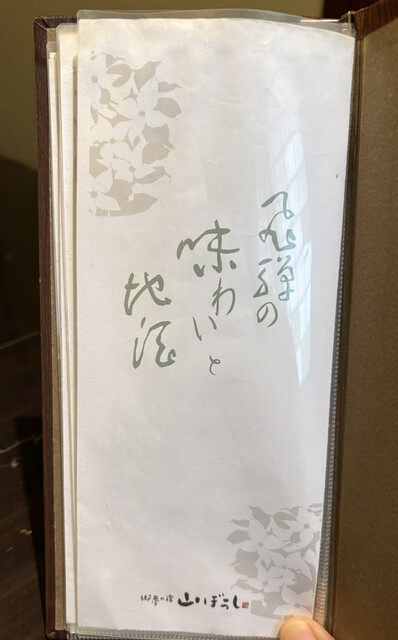 飛騨の
味わいと
地酒
の宿 山ぼうし